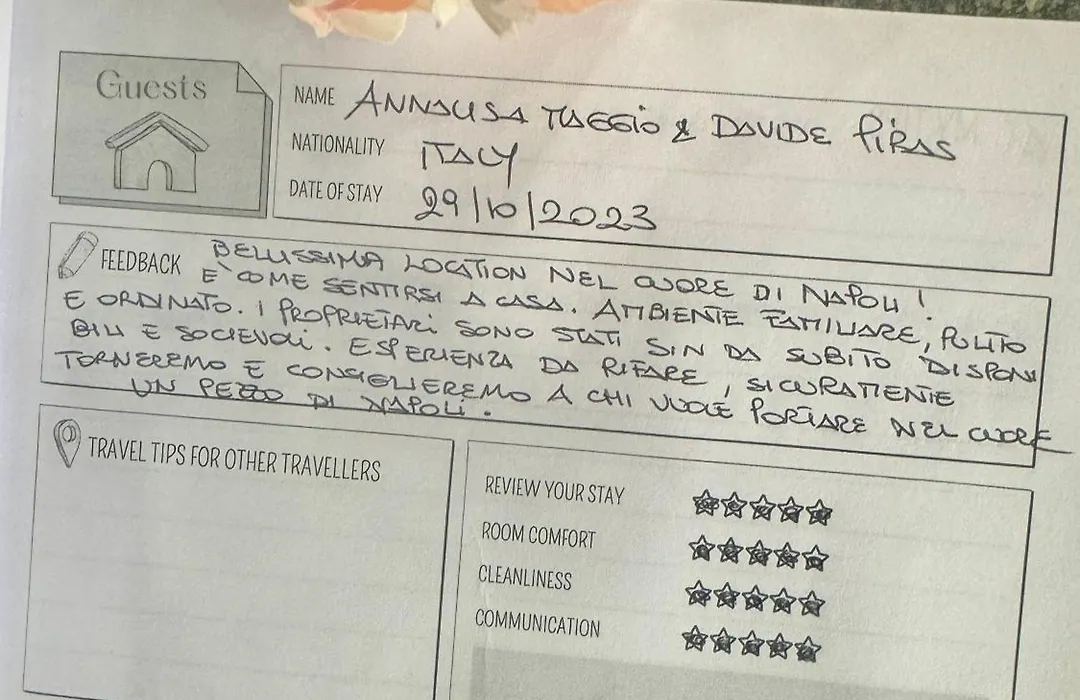 Guests
NAME ANNALISA TAGGIO & DAVIDE PIRAS
NATIONALITY ITALY
DATE OF STAY 29/10/2023
FEEDBACK BELLISSIMA LOCATION NEL CUORE DI NAPOLI!
E' COME SENTIRSI A CASA. AMBIENTE FAMILIARE, PULITO
E ORDINATO. I PROPRIETARI SONO STATI SIN DA SUBITO DISPONI
BILI E SOCIEVOLI. ESPERIENZA DA RIFARE, SICURAMENTE
TORNEREMO E CONSIGLIEREMO A CHI VUOLE PORTARE NEL CUORE
UN PEZZO DI NAPOLI.
TRAVEL TIPS FOR OTHER TRAVELLERS
REVIEW YOUR STAY
ROOM COMFORT
CLEANLINESS
COMMUNICATION